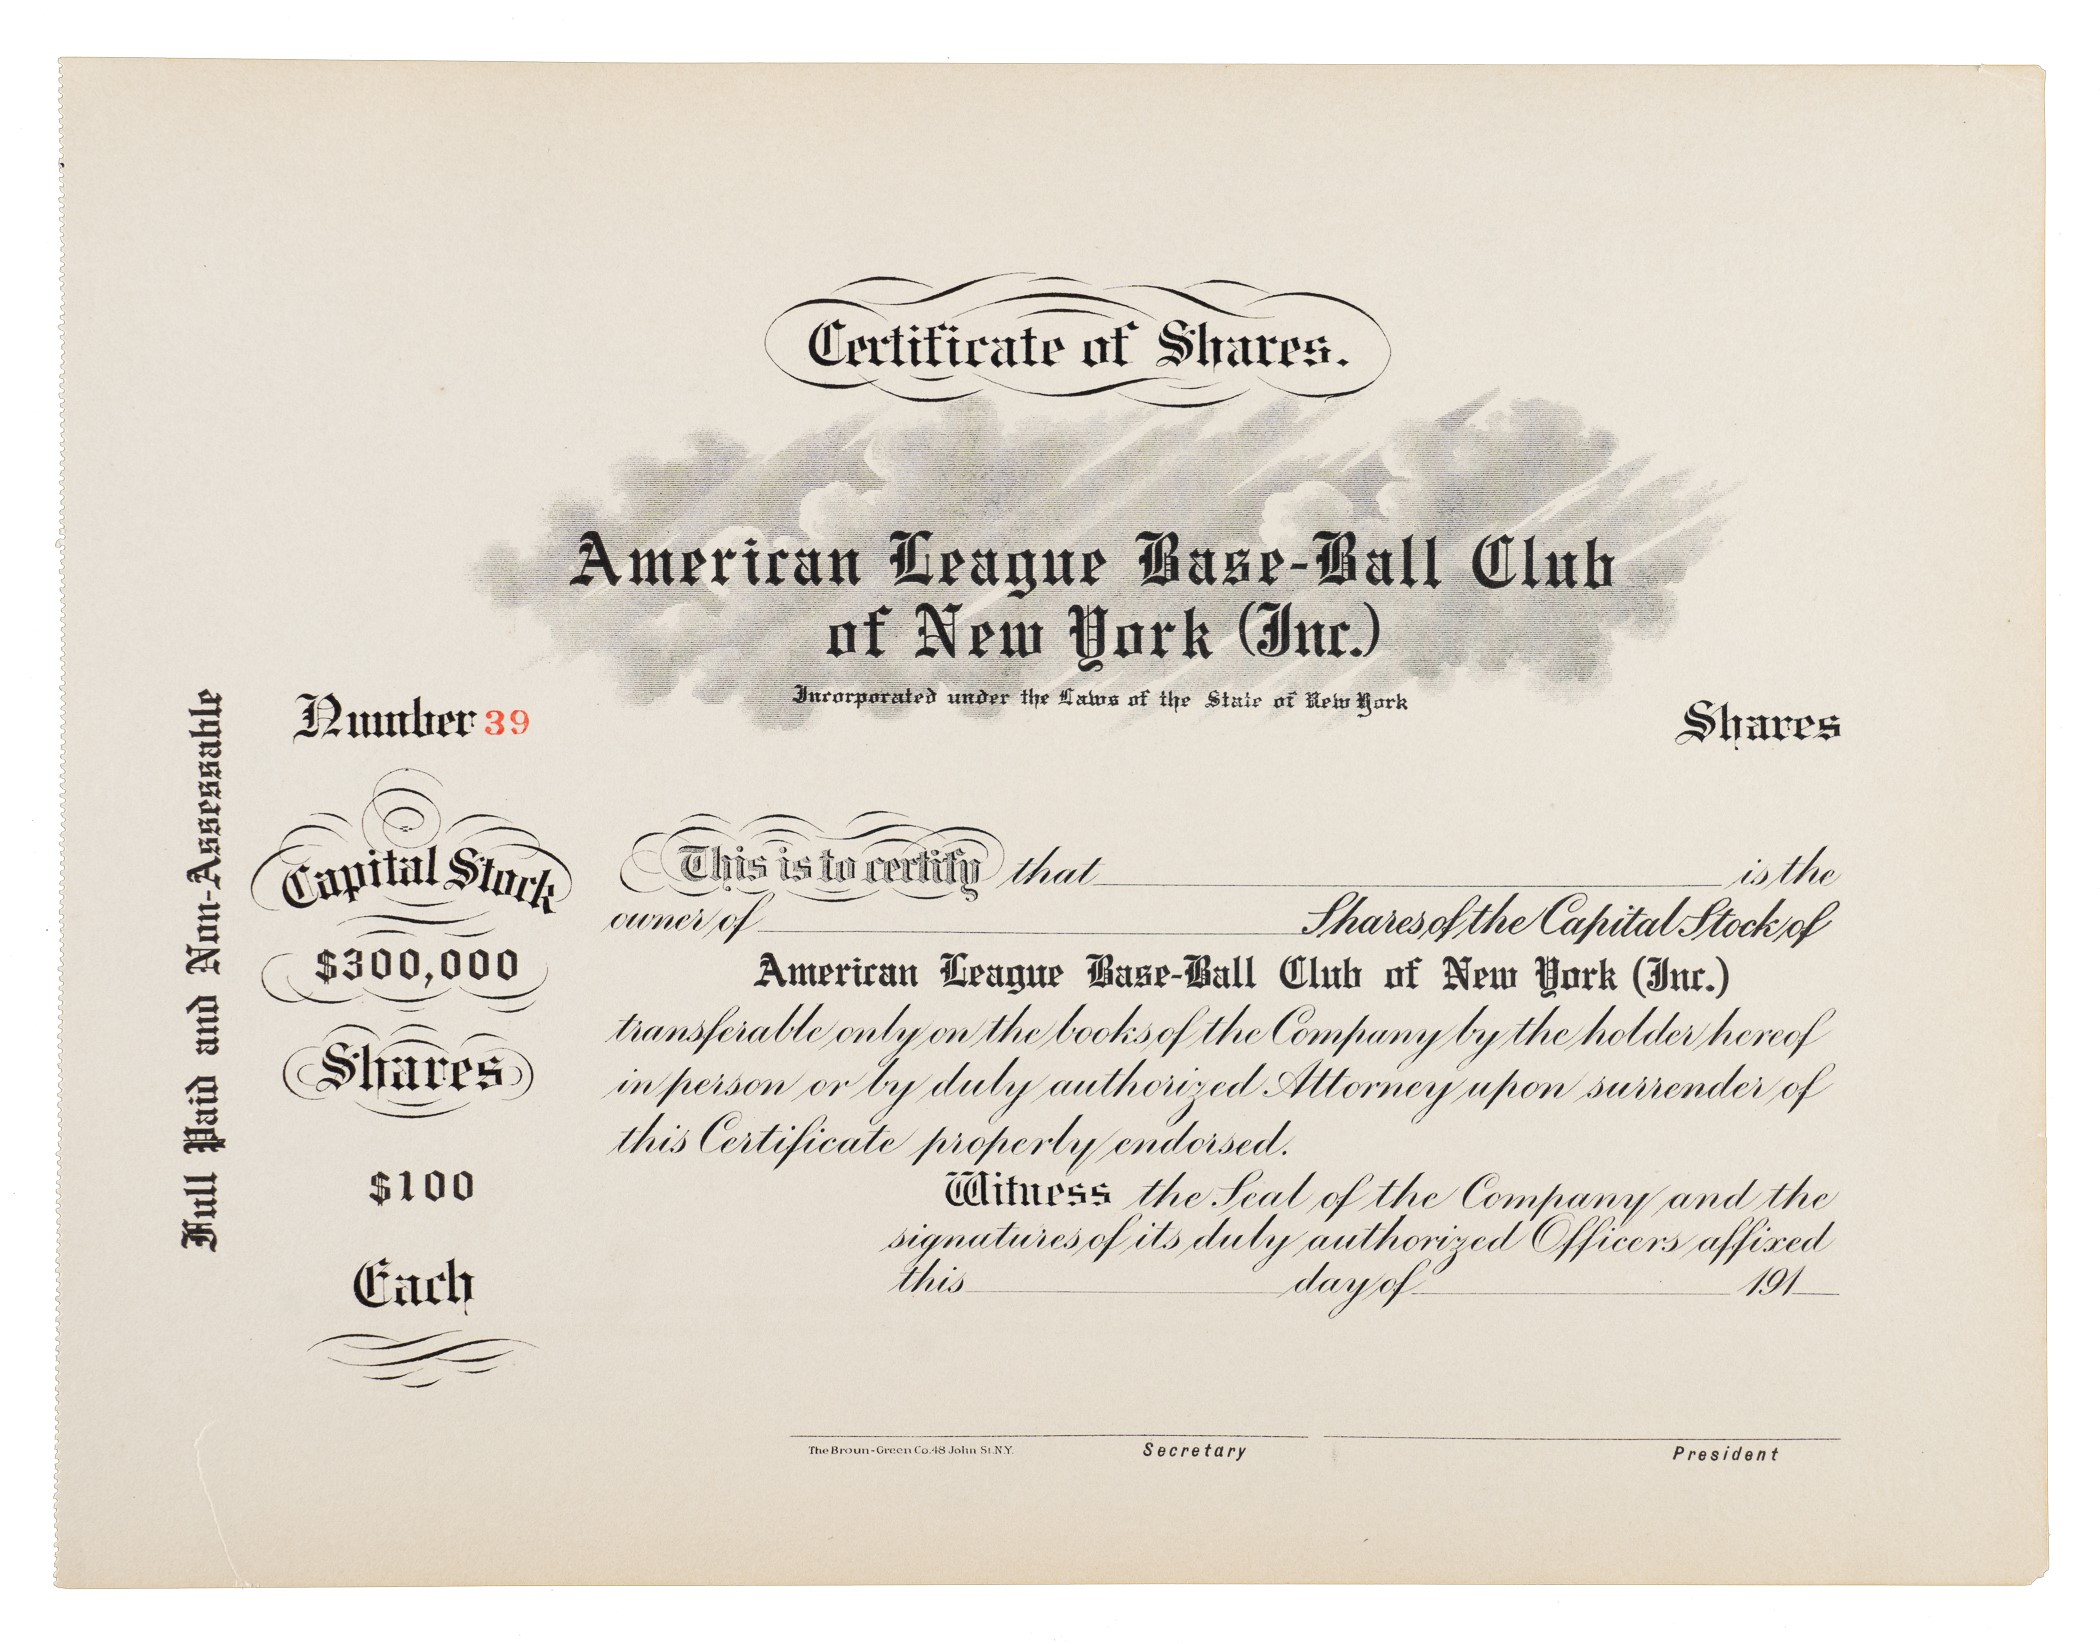 Certificate of Shares.
American League Base-Ball Club
of New York (Inc.)
Incorporated under the Laws of the State of New York
Number 39
Shares
Full Paid and Non-Assessable
Capital Stock
$300,000
Shares
$100
Each
This is to certify that is the
owner of Shares of the Capital Stock of
American League Base-Ball Club of New York (Inc.)
transferable only on the books of the Company by the holder hereof
in person or by duly authorized Attorney upon surrender of
this Certificate properly endorsed.
Witness the Seal of the Company and the
signatures of its duly authorized Officers affixed
this day of 191
The Broun-Green Co. 48 John St. N.Y.
Secretary
President